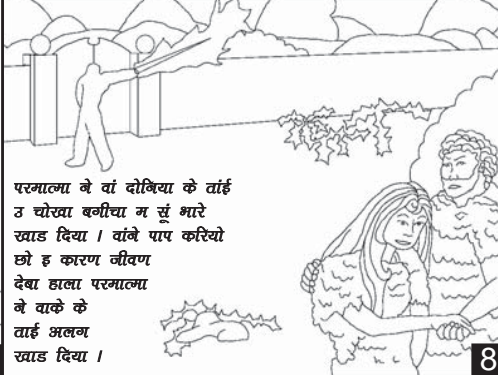 परमात्मा ने वां दोनिया के तांई
उ चोखा बगीचा म सूं भारे
खाड दिया । वांने पाप करियो
छो इ कारण जीवण
देबा हाला परमात्मा
ने वाके के
ताई अलग
खाड दिया ।
8